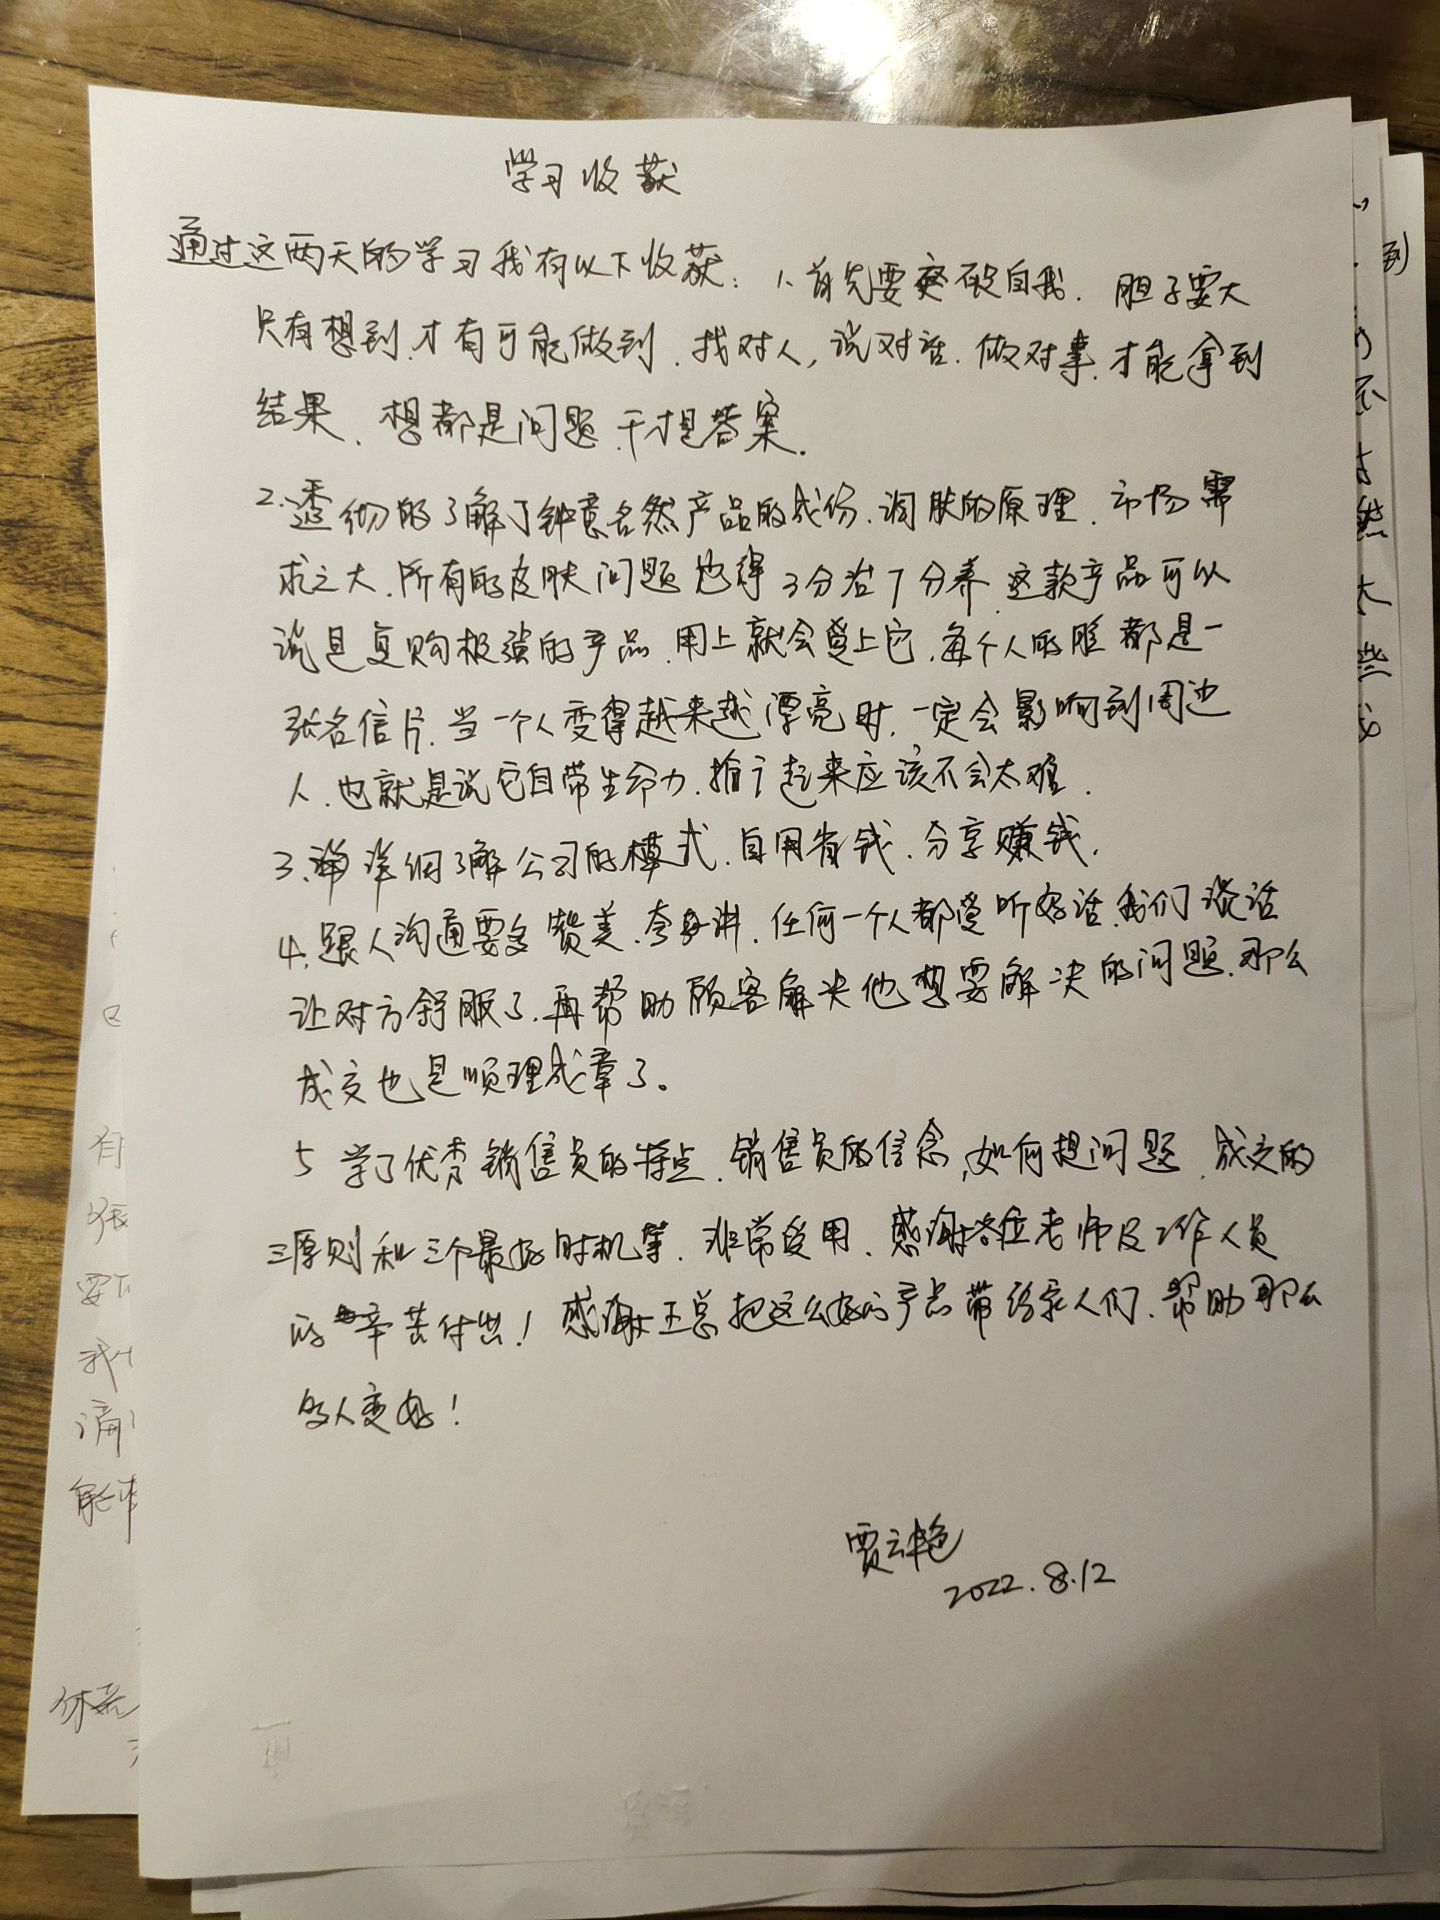 学习收获
通过这两天的学习我有以下收获：1、首先要突破自我、胆子要大
只有想到、才有可能做到、找对人，说对话、做对事、才能拿到
结果、想都是问题、干才是答案.
2、透彻的了解了钟意名然产品的成份、调肤的原理、市场需
求之大、所有的皮肤问题也得3分治7分养、这款产品可以
说是复购极强的产品、用上就会爱上它、每个人的脸都是一
张名信片、当一个人变得越来越漂亮时、一定会影响到周边
人、也就是说它自带生命力、推广起来应该不会太难、
3、详细了解公司的模式、自用省钱、分享赚钱、
4、跟人沟通要多赞美、夸着讲、任何一个人都爱听好话、我们说话
让对方舒服了、再帮助顾客解决他想要解决的问题、那么
成交也是顺理成章了。
5 学了优秀销售员的特点、销售员的信念、如何提问题、成交的
三原则和三个最好时机等、非常受用、感谢各位老师及工作人员
的辛苦付出！感谢王总把这么好的产品带给家人们、帮助那么
多人变好！
贾云艳
2022.8.12
到
大
些
有
要
我
休